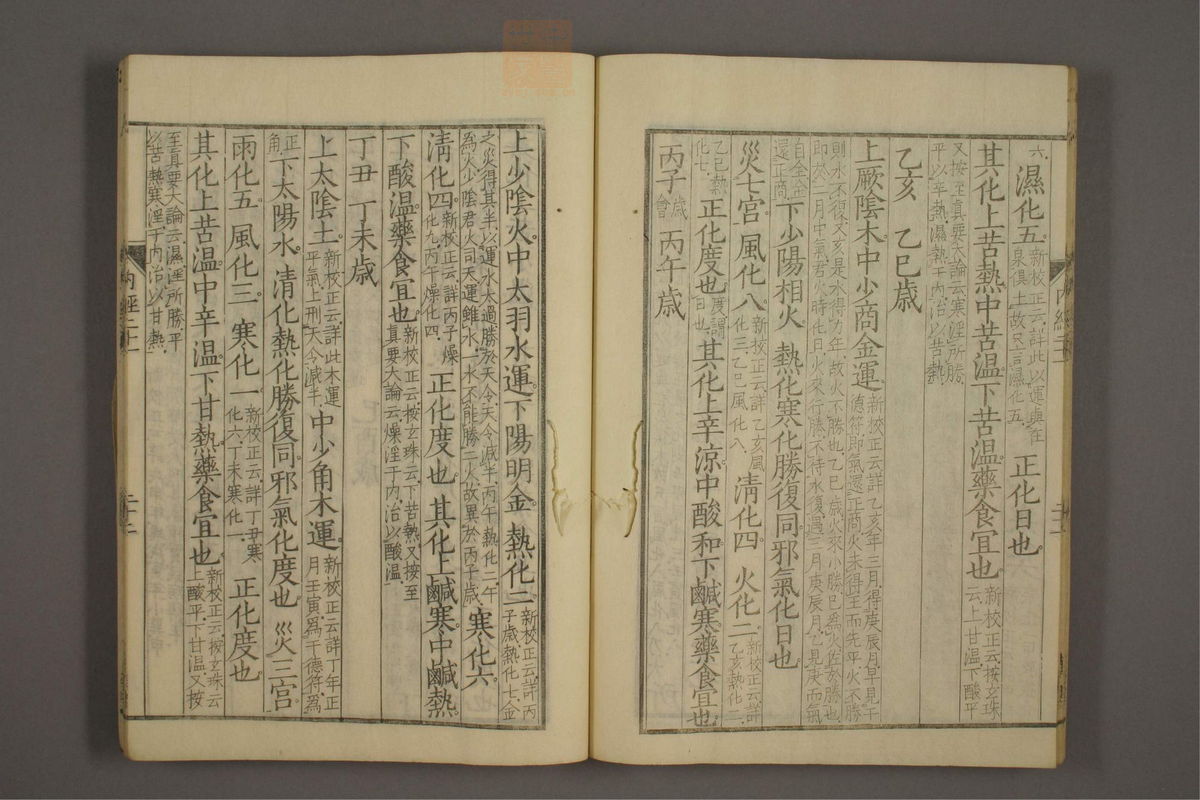 六濕化五新校正云詳此以運與在泉俱土故只言濕化五正化日也
其化上苦熱中苦温下苦温藥食宜也新校正云按玄珠云上甘温下酸平
又按至真要大論云寒淫所勝平以辛熱濕淫于内治以苦熱
乙亥　乙巳歳
上厥陰木中少商金運新校正云詳乙亥年三月得庚辰月早見干德符即氣還正商火未得王而先平火不勝
則水不復又亥是水得力年故火不勝也乙巳歳火來小勝巳為火佐於勝也即於二月中氣君火時化日火來行勝不待水復遇三月庚辰月乙見庚而氣
自全金還正商下少陽相火　熱化寒化勝復同邪氣化日也
災七宮　風化八新校正云詳乙亥風化三乙巳風化八清化四　火化二新校正云詳乙亥熱化二
乙巳熱化七正化度也度謂日也其化上辛涼中酸和下鹹寒藥食宜也
丙子歳會　丙午歳
上少陰火中太羽水運下陽明金　熱化二新校正云詳丙子歳熱化七金
之災得其半以運水太過勝於天令天令減半丙午熱化二午為火少陰君火司天運雖水一水不能勝二火故異於丙子歳寒化六
清化四新校正云詳丙子燥化九丙午燥化四正化度也　其化上鹹寒中鹹熱
下酸温藥食宜也新校正云按玄珠云下苦熱又按至真要大論云燥淫于内治以酸温
丁丑　丁未歳
上太陰土新校正云詳此木運平氣上刑天令減半中少角木運新校正云詳丁年正月壬寅爲干德符爲
正角下太陽水　清化熱化勝復同邪氣化度也　災三宮
雨化五　風化三　寒化一新校正云詳丁丑寒化六丁未寒化一正化度也
其化上苦温中辛温下甘熱藥食宜也新校正云按玄珠云上酸平下甘温又按
至真要大論云濕淫所勝平以苦熱寒淫于内治以甘熱
内經二十一
二十二